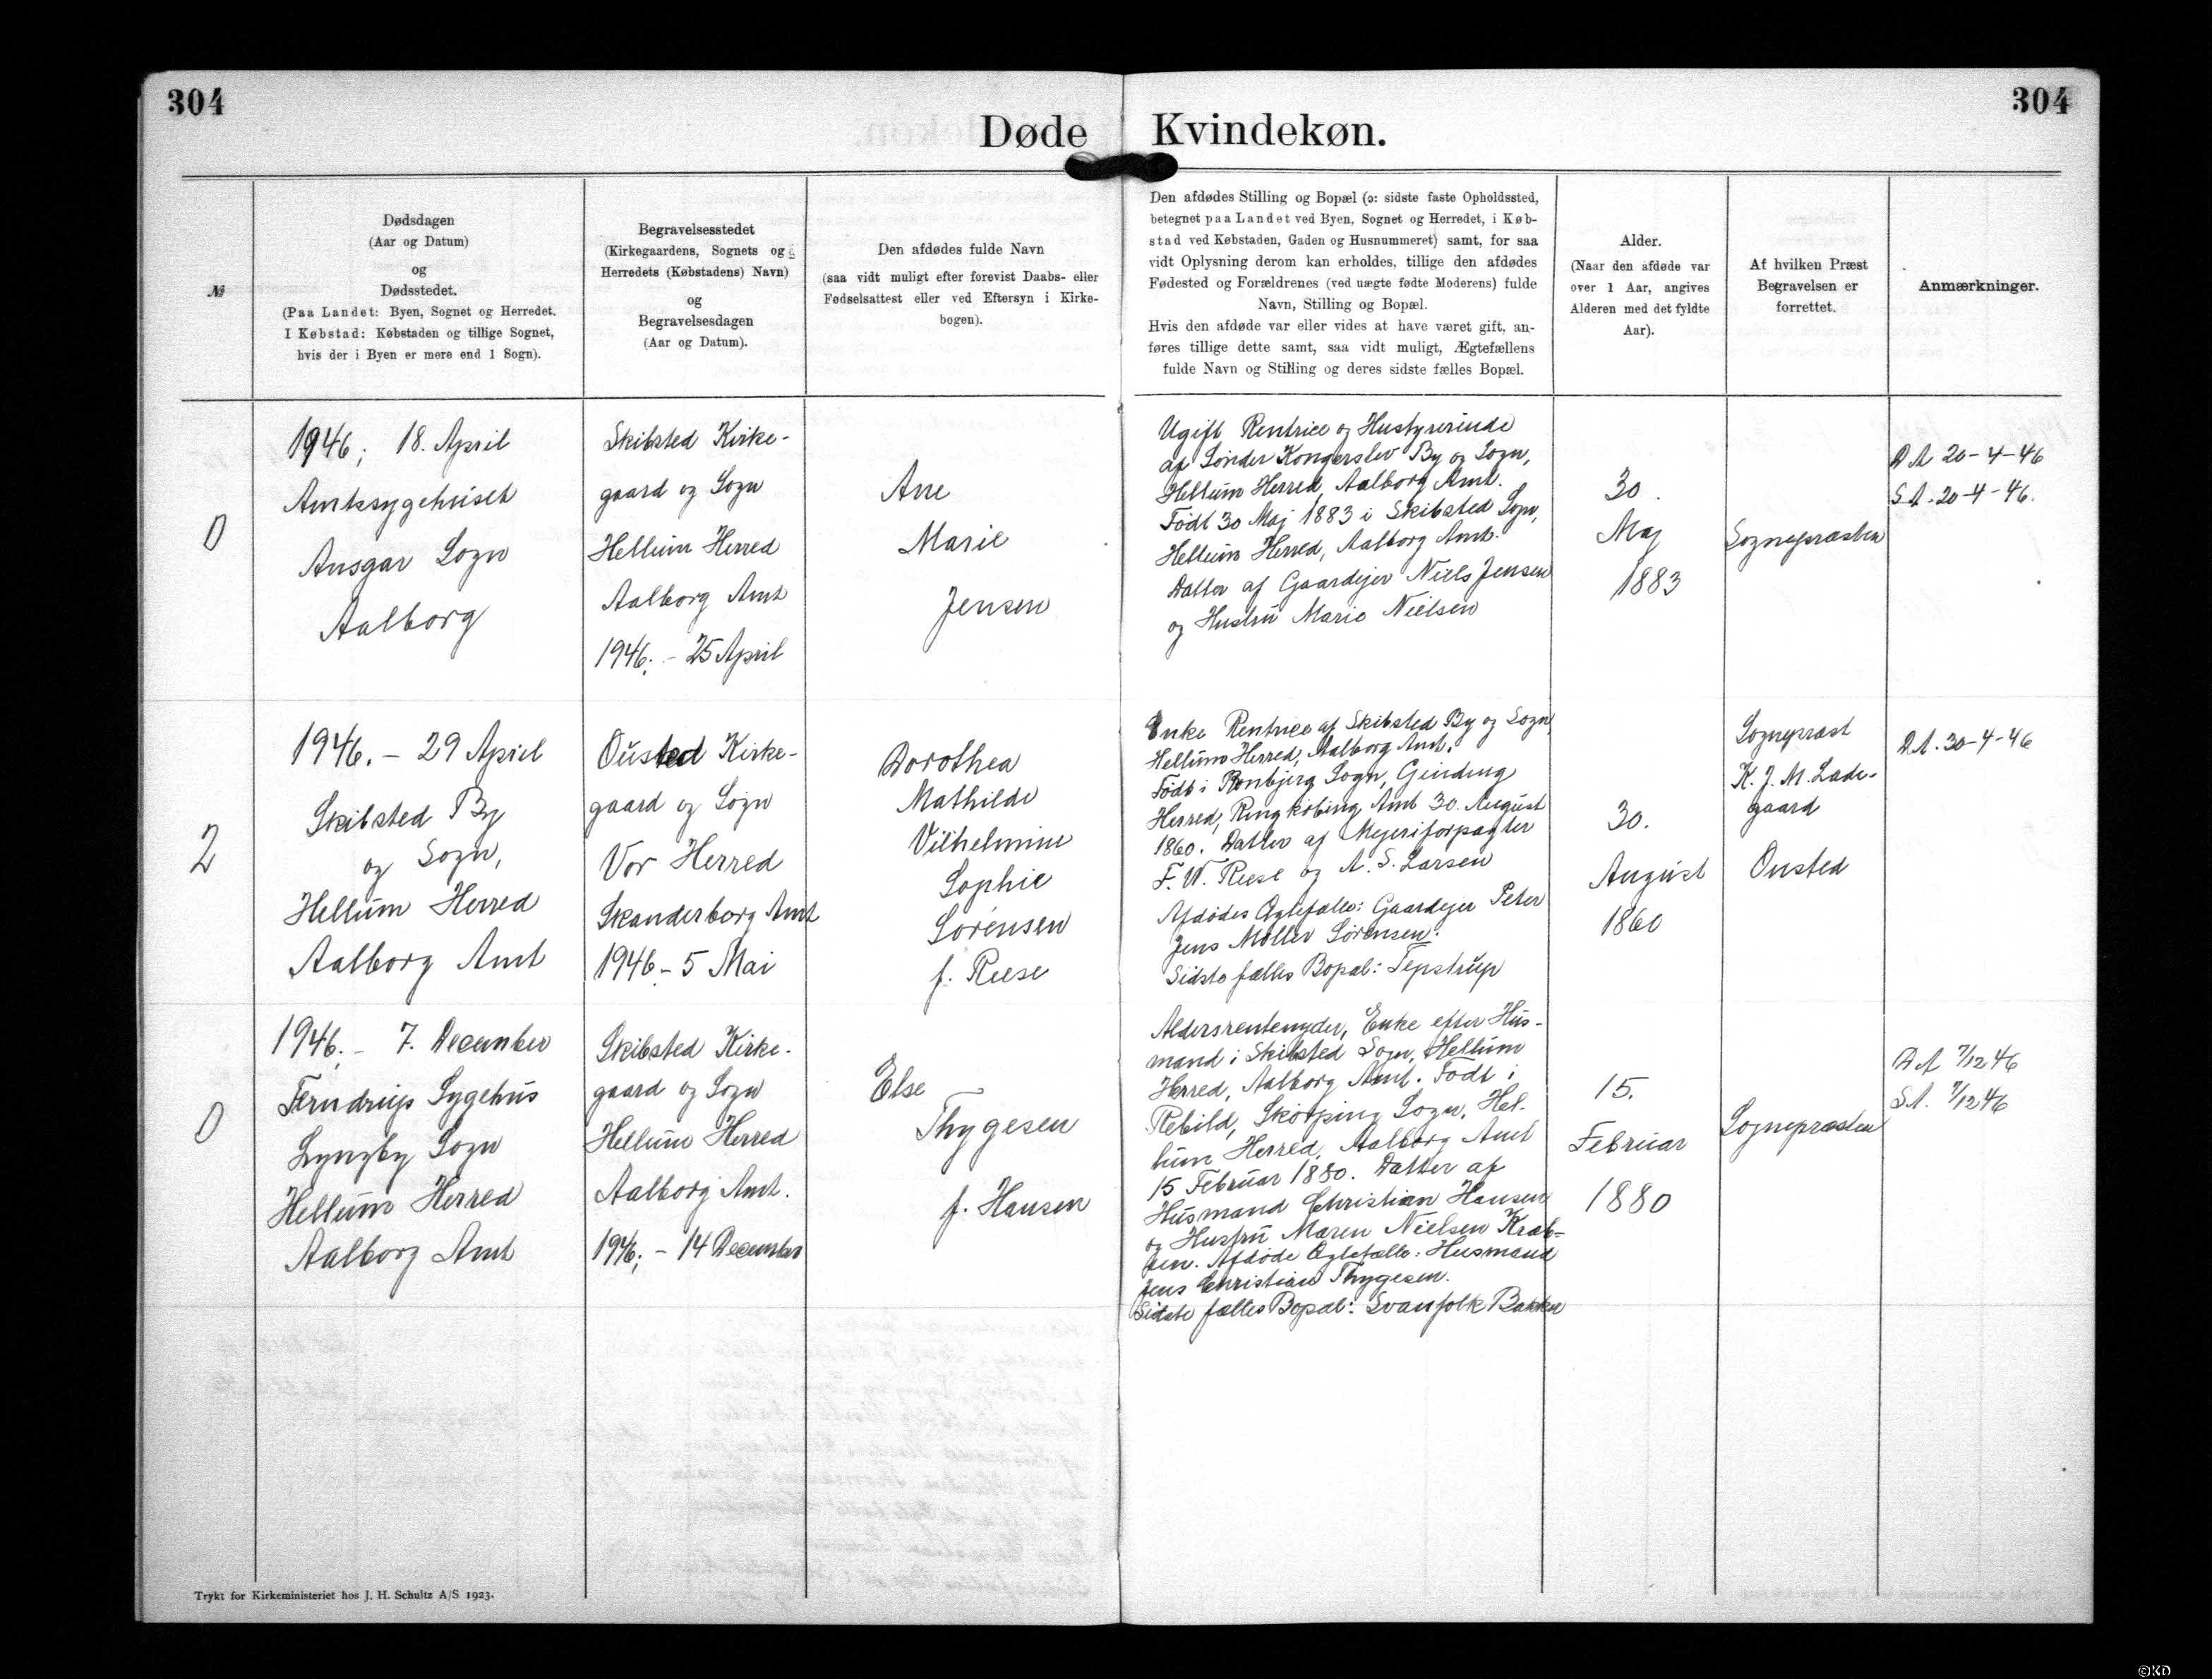 304
304
Døde
Kvindekøn.
№
Dødsdagen
(Aar og Datum)
og
Dødsstedet.
(Paa Landet: Byen, Sognet og Herredet.
I Købstad: Købstaden og tillige Sognet,
hvis der i Byen er mere end 1 Sogn).
Begravelsesstedet
(Kirkegaardens, Sognets og
Herredets (Købstadens) Navn)
og
Begravelsesdagen
(Aar og Datum).
Den afdødes fulde Navn
(saa vidt muligt efter forevist Daabs- eller
Fødselsattest eller ved Eftersyn i Kirke-
bogen).
Den afdødes Stilling og Bopæl (ɔ: sidste faste Opholdssted,
betegnet paa Landet ved Byen, Sognet og Herredet, i Køb-
stad ved Købstaden, Gaden og Husnummeret) samt, for saa
vidt Oplysning derom kan erholdes, tillige den afdødes
Fødested og Forældrenes (ved uægte fødte Moderens) fulde
Navn, Stilling og Bopæl.
Hvis den afdøde var eller vides at have været gift, an-
føres tillige dette samt, saa vidt muligt, Ægtefællens
fulde Navn og Stilling og deres sidste fælles Bopæl.
Alder.
(Naar den afdøde var
over 1 Aar, angives
Alderen med det fyldte
Aar).
Af hvilken Præst
Begravelsen er
forrettet.
Anmærkninger.
0
1946; 18. April
Amtssygehuset
Ansgar Sogn
Aalborg
Skibsted Kirke-
gaard og Sogn
Hellum Herred
Aalborg Amt
1946. - 25 April
Ane
Marie
Jensen
Ugift Rentrice og Hustyrerinde
af Sønder Kongerslev By og Sogn,
Hellum Herred, Aalborg Amt.
Født 30 Maj 1883 i Skibsted Sogn,
Hellum Herred, Aalborg Amt.
Datter af Gaardejer Niels Jensen
og Hustru Marie Nielsen
30.
Maj
1883
Sognepræsten
DA 20-4-46
SA. 20-4-46.
2
1946. - 29 April
Skibsted By
og Sogn,
Hellum Herred
Aalborg Amt
Ousted Kirke-
gaard og Sogn
Vor Herred
Skanderborg Amt
1946 - 5 Mai
Dorothea
Mathilde
Vilhelmine
Sophie
Sørensen
f. Reese
Enke Rentrice af Skibsted By og Sogn,
Hellum Herred, Aalborg Amt.
Født i Rønbjerg Sogn, Ginding
Herred, Ringkøbing Amt 30. August
1860. Datter af Mejeriforpagter
F. W. Reese og A. S. Larsen
Afdødes Ægtefælle: Gaardejer Peter
Jens Møller Sørensen.
Sidste fælles Bopæl: Tepstrup
30.
August
1860
Sognepræst
K. J. M. Lade-
gaard
Ousted
DA. 30-4-46
0
1946. - 7. December
Terndrup Sygehus
Lyngby Sogn
Hellum Herred
Aalborg Amt
Skibsted Kirke-
gaard og Sogn
Hellum Herred
Aalborg Amt.
1946; - 14 December
Else
Thygesen
f. Hansen
Aldersrentenyder, Enke efter Hus-
mand i Skibsted Sogn, Hellum
Herred, Aalborg Amt. Født i
Rebild, Skørping Sogn, Hel-
lum Herred, Aalborg Amt
15 Februar 1880. Datter af
Husmand Christian Hansen
og Hustru Maren Nielsen
Afdøde Ægtefælle: Husmand
Jens Christian Thygesen.
Sidste fælles Bopæl: Svanfolk Bakken
15.
Februar
1880
Sognepræsten
DA 7/12 46
SA. 7/12 46
Trykt for Kirkeministeriet hos J. H. Schultz A/S 1923.
©KD